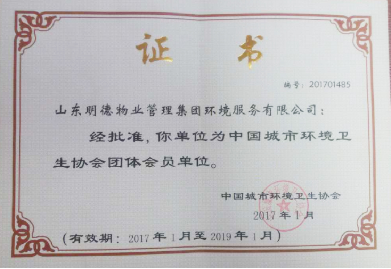 证书
编号：201701485
山东明德物业管理集团环境服务有限公司：
经批准，你单位为中国城市环境卫
生协会团体会员单位。
中国城市环境卫生协会
2017年1月
（有效期：2017年1月至2019年1月）